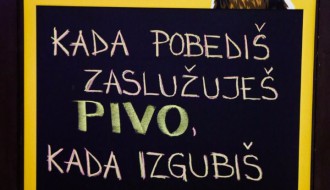 KADA POBEDIŠ
ZASLUŽUJEŠ
PIVO,
KADA IZGUBIŠ